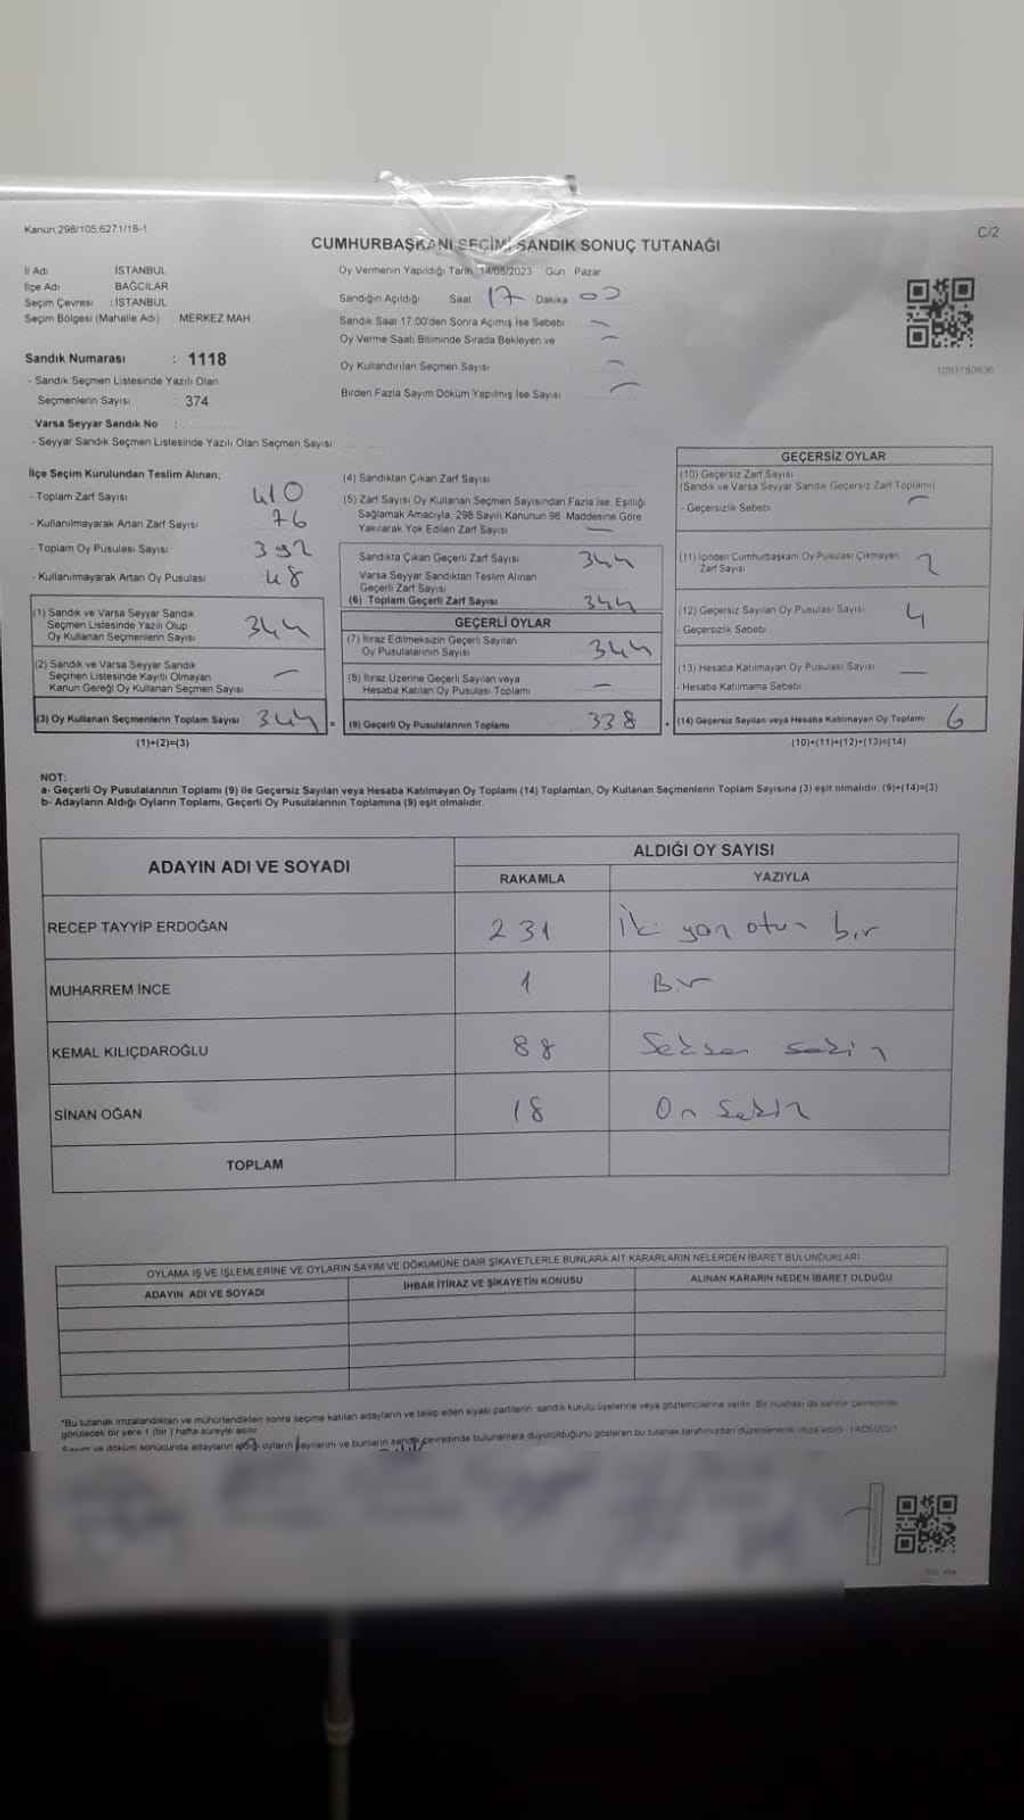 Kanun:298/105,6271/18-1
C/2
CUMHURBAŞKANI SEÇİMİ SANDIK SONUÇ TUTANAĞI
İl Adı İSTANBUL
İlçe Adı BAĞCILAR
Seçim Çevresi :İSTANBUL
Seçim Bölgesi (Mahalle Adı) MERKEZ MAH
Sandık Numarası : 1118
- Sandık Seçmen Listesinde Yazılı Olan
Seçmenlerin Sayısı 374
Varsa Seyyar Sandık No :
- Seyyar Sandık Seçmen Listesinde Yazılı Olan Seçmen Sayısı
Oy Vermenin Yapıldığı Tarih 14/05/2023 Gün Pazar
Sandığın Açıldığı Saat 17 Dakika 00
Sandık Saat 17.00'den Sonra Açılmış İse Sebebi —
Oy Verme Saati Bitiminde Sırada Bekleyen ve —
Oy Kullandırılan Seçmen Sayısı —
Birden Fazla Sayım Döküm Yapılmış İse Sayısı —
İlçe Seçim Kurulundan Teslim Alınan;
- Toplam Zarf Sayısı 410
- Kullanılmayarak Artan Zarf Sayısı 76
- Toplam Oy Pusulası Sayısı 392
- Kullanılmayarak Artan Oy Pusulası 48
(1) Sandık ve Varsa Seyyar Sandık
Seçmen Listesinde Yazılı Olup
Oy Kullanan Seçmenlerin Sayısı 344
(2) Sandık ve Varsa Seyyar Sandık
Seçmen Listesinde Kayıtlı Olmayan
Kanun Gereği Oy Kullanan Seçmen Sayısı —
(3) Oy Kullanan Seçmenlerin Toplam Sayısı 344
(1)+(2)=(3)
(4) Sandıktan Çıkan Zarf Sayısı
(5) Zarf Sayısı Oy Kullanan Seçmen Sayısından Fazla ise, Eşitliği
Sağlamak Amacıyla, 298 Sayılı Kanunun 98. Maddesine Göre
Yakılarak Yok Edilen Zarf Sayısı —
Sandıkta Çıkan Geçerli Zarf Sayısı 344
Varsa Seyyar Sandıktan Teslim Alınan
Geçerli Zarf Sayısı
(6) Toplam Geçerli Zarf Sayısı 344
GEÇERLİ OYLAR
(7) İtiraz Edilmeksizin Geçerli Sayılan
Oy Pusulalarının Sayısı 344
(8) İtiraz Üzerine Geçerli Sayılan veya
Hesaba Katılan Oy Pusulası Toplamı —
(9) Geçerli Oy Pusulalarının Toplamı 338
GEÇERSİZ OYLAR
(10) Geçersiz Zarf Sayısı
(Sandık ve Varsa Seyyar Sandık Geçersiz Zarf Toplamı) —
- Geçersizlik Sebebi
(11) İçinden Cumhurbaşkanı Oy Pusulası Çıkmayan
Zarf Sayısı 2
(12) Geçersiz Sayılan Oy Pusulası Sayısı 4
- Geçersizlik Sebebi
(13) Hesaba Katılmayan Oy Pusulası Sayısı —
- Hesaba Katılmama Sebebi
(14) Geçersiz Sayılan veya Hesaba Katılmayan Oy Toplamı 6
(10)+(11)+(12)+(13)=(14)
NOT:
a- Geçerli Oy Pusulalarının Toplamı (9) ile Geçersiz Sayılan veya Hesaba Katılmayan Oy Toplamı (14) Toplamları, Oy Kullanan Seçmenlerin Toplam Sayısına (3) eşit olmalıdır. (9)+(14)=(3)
b- Adayların Aldığı Oyların Toplamı, Geçerli Oy Pusulalarının Toplamına (9) eşit olmalıdır.
ADAYIN ADI VE SOYADI
ALDIĞI OY SAYISI
RAKAMLA YAZIYLA
RECEP TAYYİP ERDOĞAN 231 İki yüz otuz bir
MUHARREM İNCE 1 Bir
KEMAL KILIÇDAROĞLU 88 Seksen sekiz
SİNAN OĞAN 18 On sekiz
TOPLAM
OYLAMA İŞ VE İŞLEMLERİNE VE OYLARIN SAYIM VE DÖKÜMÜNE DAİR ŞİKAYETLERLE BUNLARA AİT KARARLARIN NELERDEN İBARET BULUNDUKLARI
ADAYIN ADI VE SOYADI İHBAR İTİRAZ VE ŞİKAYETİN KONUSU ALINAN KARARIN NEDEN İBARET OLDUĞU
*Bu tutanak imzalandıktan ve mühürlendikten sonra seçime katılan adayların ve talep eden siyasi partilerin sandık kurulu üyelerine veya gözlemcilerine verilir. Bir nüshası da sandık çevresinde
görülecek bir yere 1 (bir) hafta süreyle asılır.
Sayım ve döküm sonucunda adayların aldığı oyların sayılarını ve bunların sandık çevresinde bulunanlara duyurulduğunu gösteren bu tutanak tarafımızdan düzenlenerek